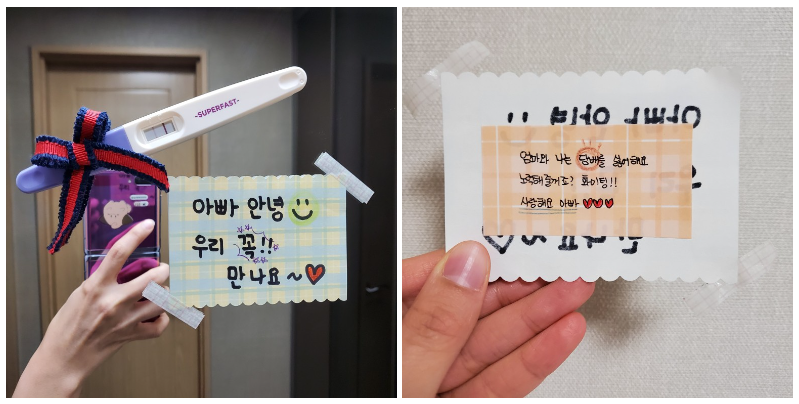 -SUPERFAST-
아빠 안녕
우리 꼭!!
만나요~
엄마와 나는 담배를 싫어해요
노력해줄거죠? 화이팅!!
사랑해요 아빠